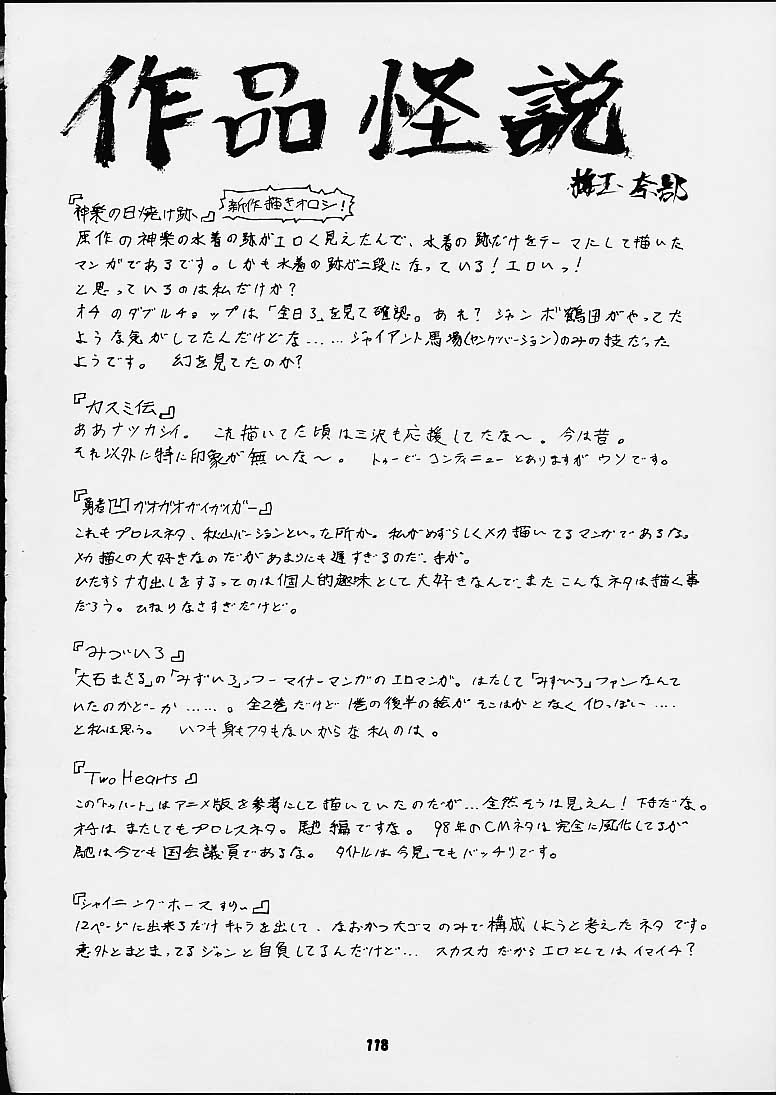 作品怪説
梅玉奈部
『神楽の日焼け跡、』
新作描きオロシ!
原作の神楽の水着の跡がエロく見えたんで、水着の跡だけをテーマにして描いた
マンガであるです。しかも水着の跡が二段になっている!エロいっ!
と思っているのは私だけか?
オチのダブルチョップは「全日る」を見て確認。あれ?ジャンボ鶴田がやってた
ような気がしてたんだけどな……ジャイアント馬場(ヤングバージョン)のみの技だった
ようです。 幻を見てたのか?
『カスミ伝』
ああナツカシイ。 これ描いてた頃は三沢も応援してたな〜。今は昔。
それ以外に特に印象が無いな〜。 トゥービーコンティニューとありますがウソです。
『勇者凹ガオガオガイガイガー』
これもプロレスネタ、秋山バージョンといった所か。私がめずらしくメカ描いてるマンガであるな。
メカ描くの大好きなのだがあまりにも遅すぎるのだ、手が。
ひたすらナカ出しをするってのは個人的趣味として大好きなんで、またこんなネタは描く事
だろう。ひねりなさすぎだけど。
『みづいろ』
「大石まさる」の「みずいろ」、つーマイナーマンガのエロマンガ。はたして「みずいろ」ファンなんて
いたのかどーか……。全2巻だけど1巻の後半の絵がそこはかとなくイロっぽい……
と私は思う。 いつも身もフタもないからな私のは。
『Two Hearts』
この「トゥハート」はアニメ版を参考にして描いていたのだが…全然そうは見えん!下手だな。
オチはまたしてもプロレスネタ。馳編ですな。 98年のCMネタは完全に風化してるが
馳は今でも国会議員であるな。 タイトルは今見てもバッチリです。
『シャイニングホース すりぃ』
12ページに出来るだけキャラを出して、なおかつ大ゴマのみで構成しようと考えたネタです。
意外とまとまってるジャンと自負してるんだけど… スカスカだからエロとしてはイマイチ?
118